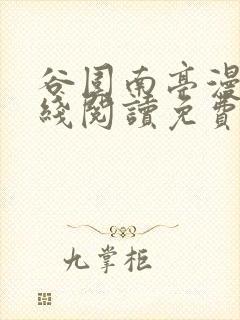 谷園南亭漫
綫閱讀免費
九掌柜